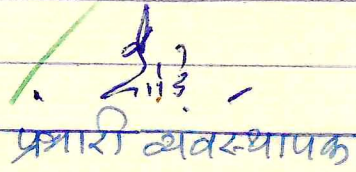 प्रभारी व्यवस्थापक